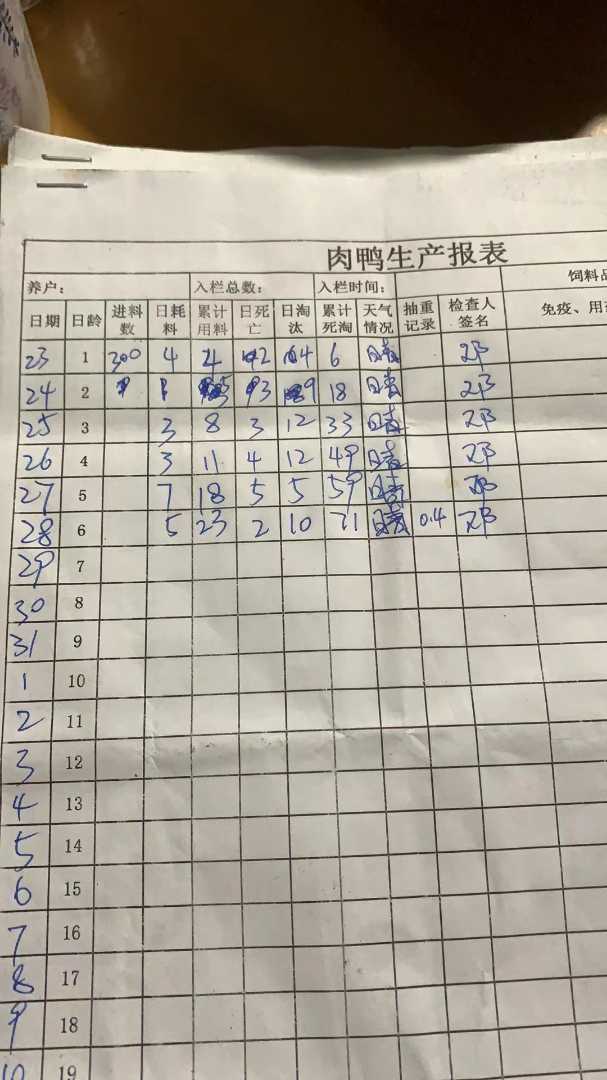 肉鸭生产报表
养户： 入栏总数： 入栏时间： 饲料品
日期 日龄 进料数 日耗料 累计用料 日死亡 日淘汰 累计死淘 天气情况 抽重记录 检查人签名 免疫、用
23 1 300 4 4 2 4 6 晴 邓
24 2 1 5 3 9 18 晴 邓
25 3 3 8 3 12 33 晴 邓
26 4 3 11 4 12 49 晴 邓
27 5 7 18 5 5 59 晴 邓
28 6 5 23 2 10 71 晴 0.4 邓
29 7
30 8
31 9
1 10
2 11
3 12
4 13
5 14
6 15
7 16
8 17
9 18
10 19